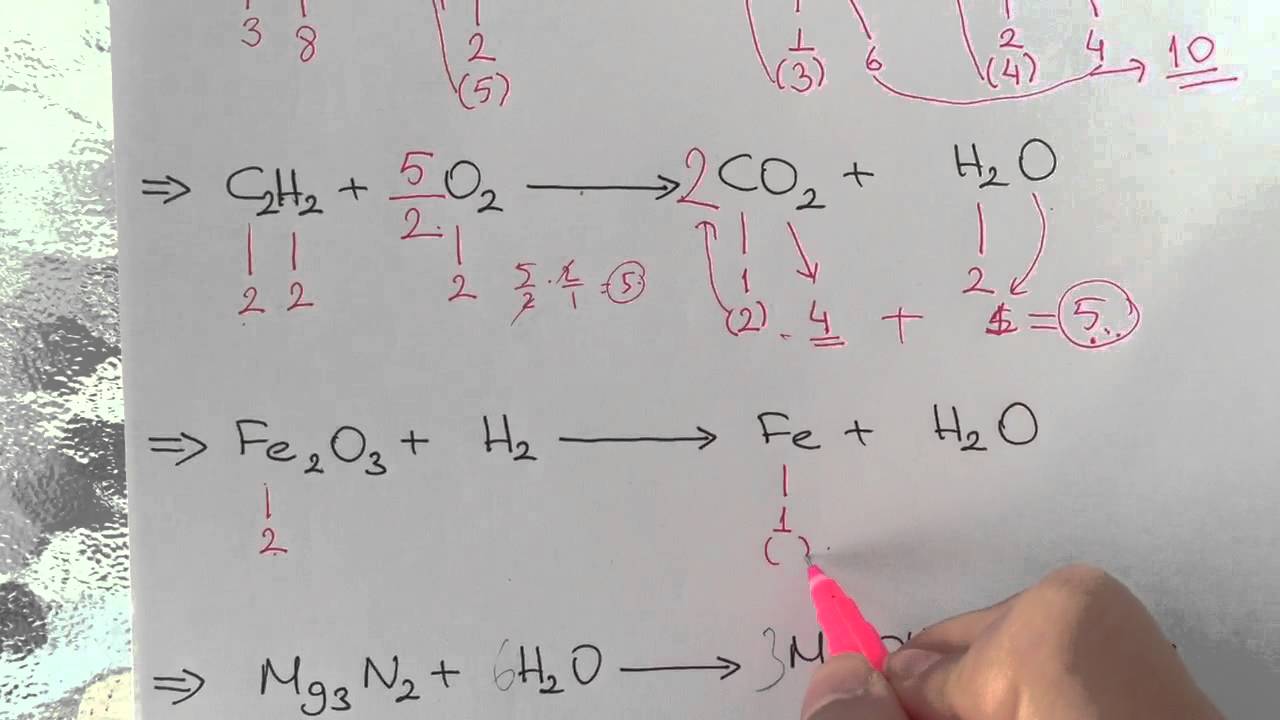 3 8 2 1 6 2 4 10
(5) (3) (4)
⇒ C₂H₂ + 5/2 O₂ ⟶ 2CO₂ + H₂O
2 2 2 5/2 · 2/1 = 5 1 2
(2) 4 + 1 = 5
⇒ Fe₂O₃ + H₂ ⟶ Fe + H₂O
2 1
( )
⇒ Mg₃N₂ + 6H₂O ⟶ 3M